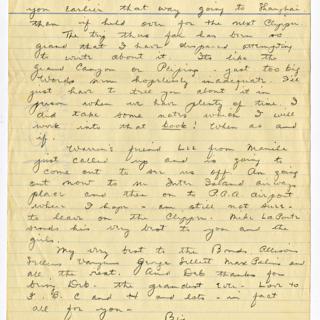 you earlier that way going to Shanghai
than if held over for the next Clipper.
The trip thus far has been so
grand that I have dispaired attempting
to write about it. Its like the
Grand Canyon or Peiping - just too big
Words seem hopelessly inadequate. I'll
just have to tell you about it in
person when we have plenty of time. I
did take some notes which I will
work into that book! When as and
if.
Warren's friend Lee from Manila
just called up and is going to
come out to see us off. Am going
out now to Inter Island airways
place and then on P.A.A. airport
where I hope - am still not sure -
to leave on the Clipper. Mike LaPorte
sends his very best to you and the
girls.
My very best to the Bonds, Allisons
George Sellett Max Polin and
all the rest. And Deb thanks for
being Deb. the grandest Ever. Love to
P. B. C and H and lots - in fact
all for you -